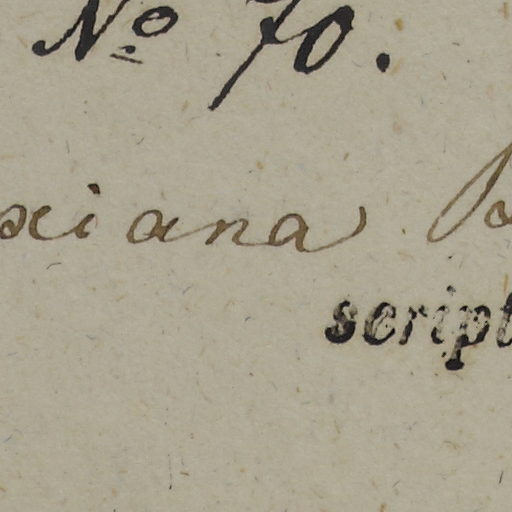 No 70.
xiana
script